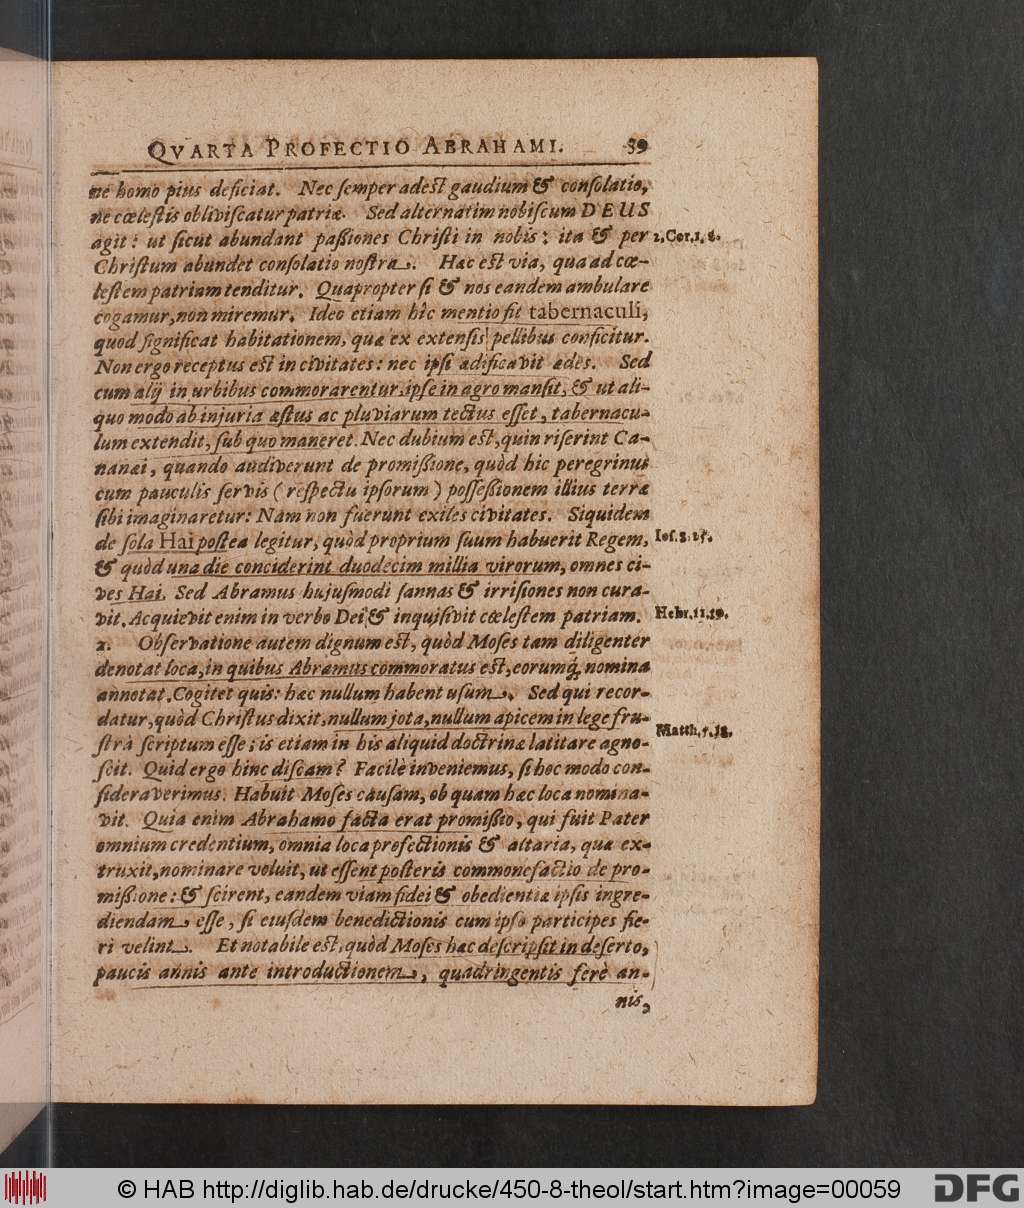 QVARTA PROFECTIO ABRAHAMI. 59
ne homo pius deficiat. Nec ſemper adeſt gaudium & conſolatio,
ne cœleſtis obliviſcatur patriæ. Sed alternatim nobiſcum DEUS
agit: ut ſicut abundant paſſiones Chriſti in nobis: ita & per
2. Cor. 1, 6.
Chriſtum abundet conſolatio noſtra. Hac eſt via, qua ad cœ-
leſtem patriam tenditur. Quapropter ſi & nos eandem ambulare
cogamur, non miremur. Ideo etiam hîc mentio fit tabernaculi,
quod ſignificat habitationem, quæ ex extenſis pellibus conficitur.
Non ergo receptus eſt in civitates: nec ipſi ædificavit ædes. Sed
cum alij in urbibus commorarentur, ipſe in agro manſit, & ut ali-
quo modo ab injuria æſtus ac pluviarum tectus eſſet, tabernacu-
lum extendit, ſub quo maneret. Nec dubium eſt, quin riſerint Ca-
nanæi, quando audiverunt de promiſſione, quòd hic peregrinus
cum pauculis ſervis (reſpectu ipſorum) poſſeſſionem illius terræ
ſibi imaginaretur: Nam non fuerunt exiles civitates. Siquidem
de ſola Hai poſtea legitur, quòd proprium ſuum habuerit Regem,
Ioſ. 8. 25.
& quòd una die conciderint duodecim millia virorum, omnes ci-
ves Hai. Sed Abramus hujuſmodi ſannas & irriſiones non cura-
vit. Acquievit enim in verbo Dei & inquiſivit cœleſtem patriam.
Hebr. 11. 10.
2. Obſervatione autem dignum eſt, quòd Moſes tam diligenter
denotat loca, in quibus Abramus commoratus eſt, eorumq́; nomina
annotat. Cogitet quis: hæc nullum habent uſum. Sed qui recor-
datur, quòd Chriſtus dixit, nullum jota, nullum apicem in lege fru-
Matth. 5. 18.
ſtrà ſcriptum eſſe; is etiam in his aliquid doctrinæ latitare agno-
ſcit. Quid ergo hinc diſcam? Facilè inveniemus, ſi hoc modo con-
ſideraverimus. Habuit Moſes cauſam, ob quam hæc loca nomina-
vit. Quia enim Abrahamo facta erat promiſſio, qui fuit Pater
omnium credentium, omnia loca profectionis & altaria, quæ ex-
truxit, nominare voluit, ut eſſent poſteris commonefactio de pro-
miſſione: & ſcirent, eandem viam fidei & obedientiæ ipſis ingre-
diendam eſſe, ſi eiuſdem benedictionis cum ipſo participes fie-
ri velint. Et notabile eſt, quòd Moſes hæc deſcripſit in deſerto,
paucis annis ante introductionem, quadringentis ferè an-
nis,
© HAB http://diglib.hab.de/drucke/450-8-theol/start.htm?image=00059
DFG